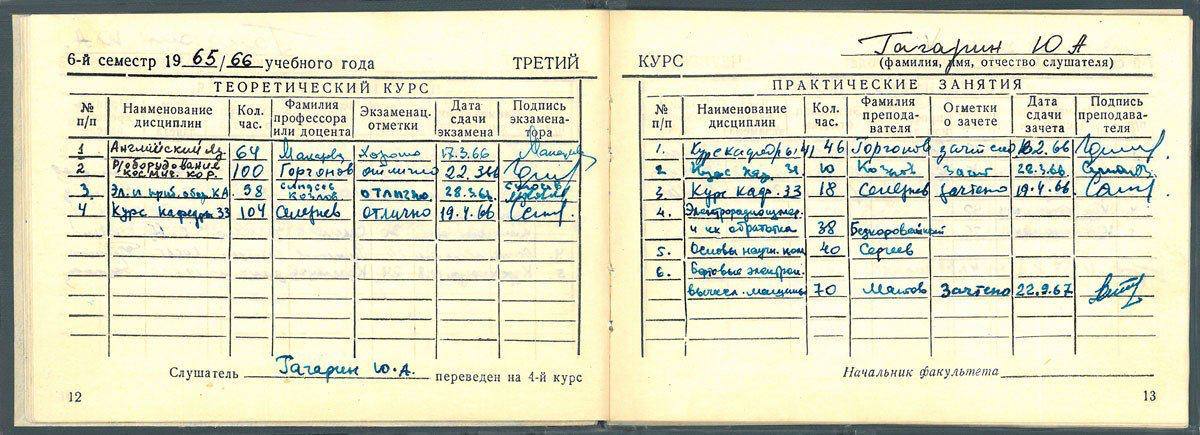 6-й семестр 1965/66 учебного года ТРЕТИЙ
ТЕОРЕТИЧЕСКИЙ КУРС
№ п/п Наименование дисциплин Кол. час. Фамилия профессора или доцента Экзаменац. отметки Дата сдачи экзамена Подпись экзаменатора
1 Английский яз. 64 Макарова Хорошо 17.3.66
2 Р/оборудование космич. кор. 100 Горгонов отлично 22.3.66
3. Эл. и приб. обор. КА 98 Козлов отлично 28.3.66
4 Курс кафедры 33 104 отлично 19.4.66
Слушатель Гагарин Ю.А. переведен на 4-й курс
12
КУРС Гагарин Ю А
(фамилия, имя, отчество слушателя)
ПРАКТИЧЕСКИЕ ЗАНЯТИЯ
№ п/п Наименование дисциплин Кол. час. Фамилия преподавателя Отметки о зачете Дата сдачи зачета Подпись преподавателя
1. Курс кафедры 41 46 Горгонов зачтено
2. Курс каф. 31 10 Козлов Зачт 28.3.66
3. Курс каф. 33 18 зачтено 19.4.66
4.
и их обработка 38
5. Основы научн. ком 40 Сергеев
6. Бортовые электрон.
вычисл. машины 70 Зачтено 22.9.67
Начальник факультета
13